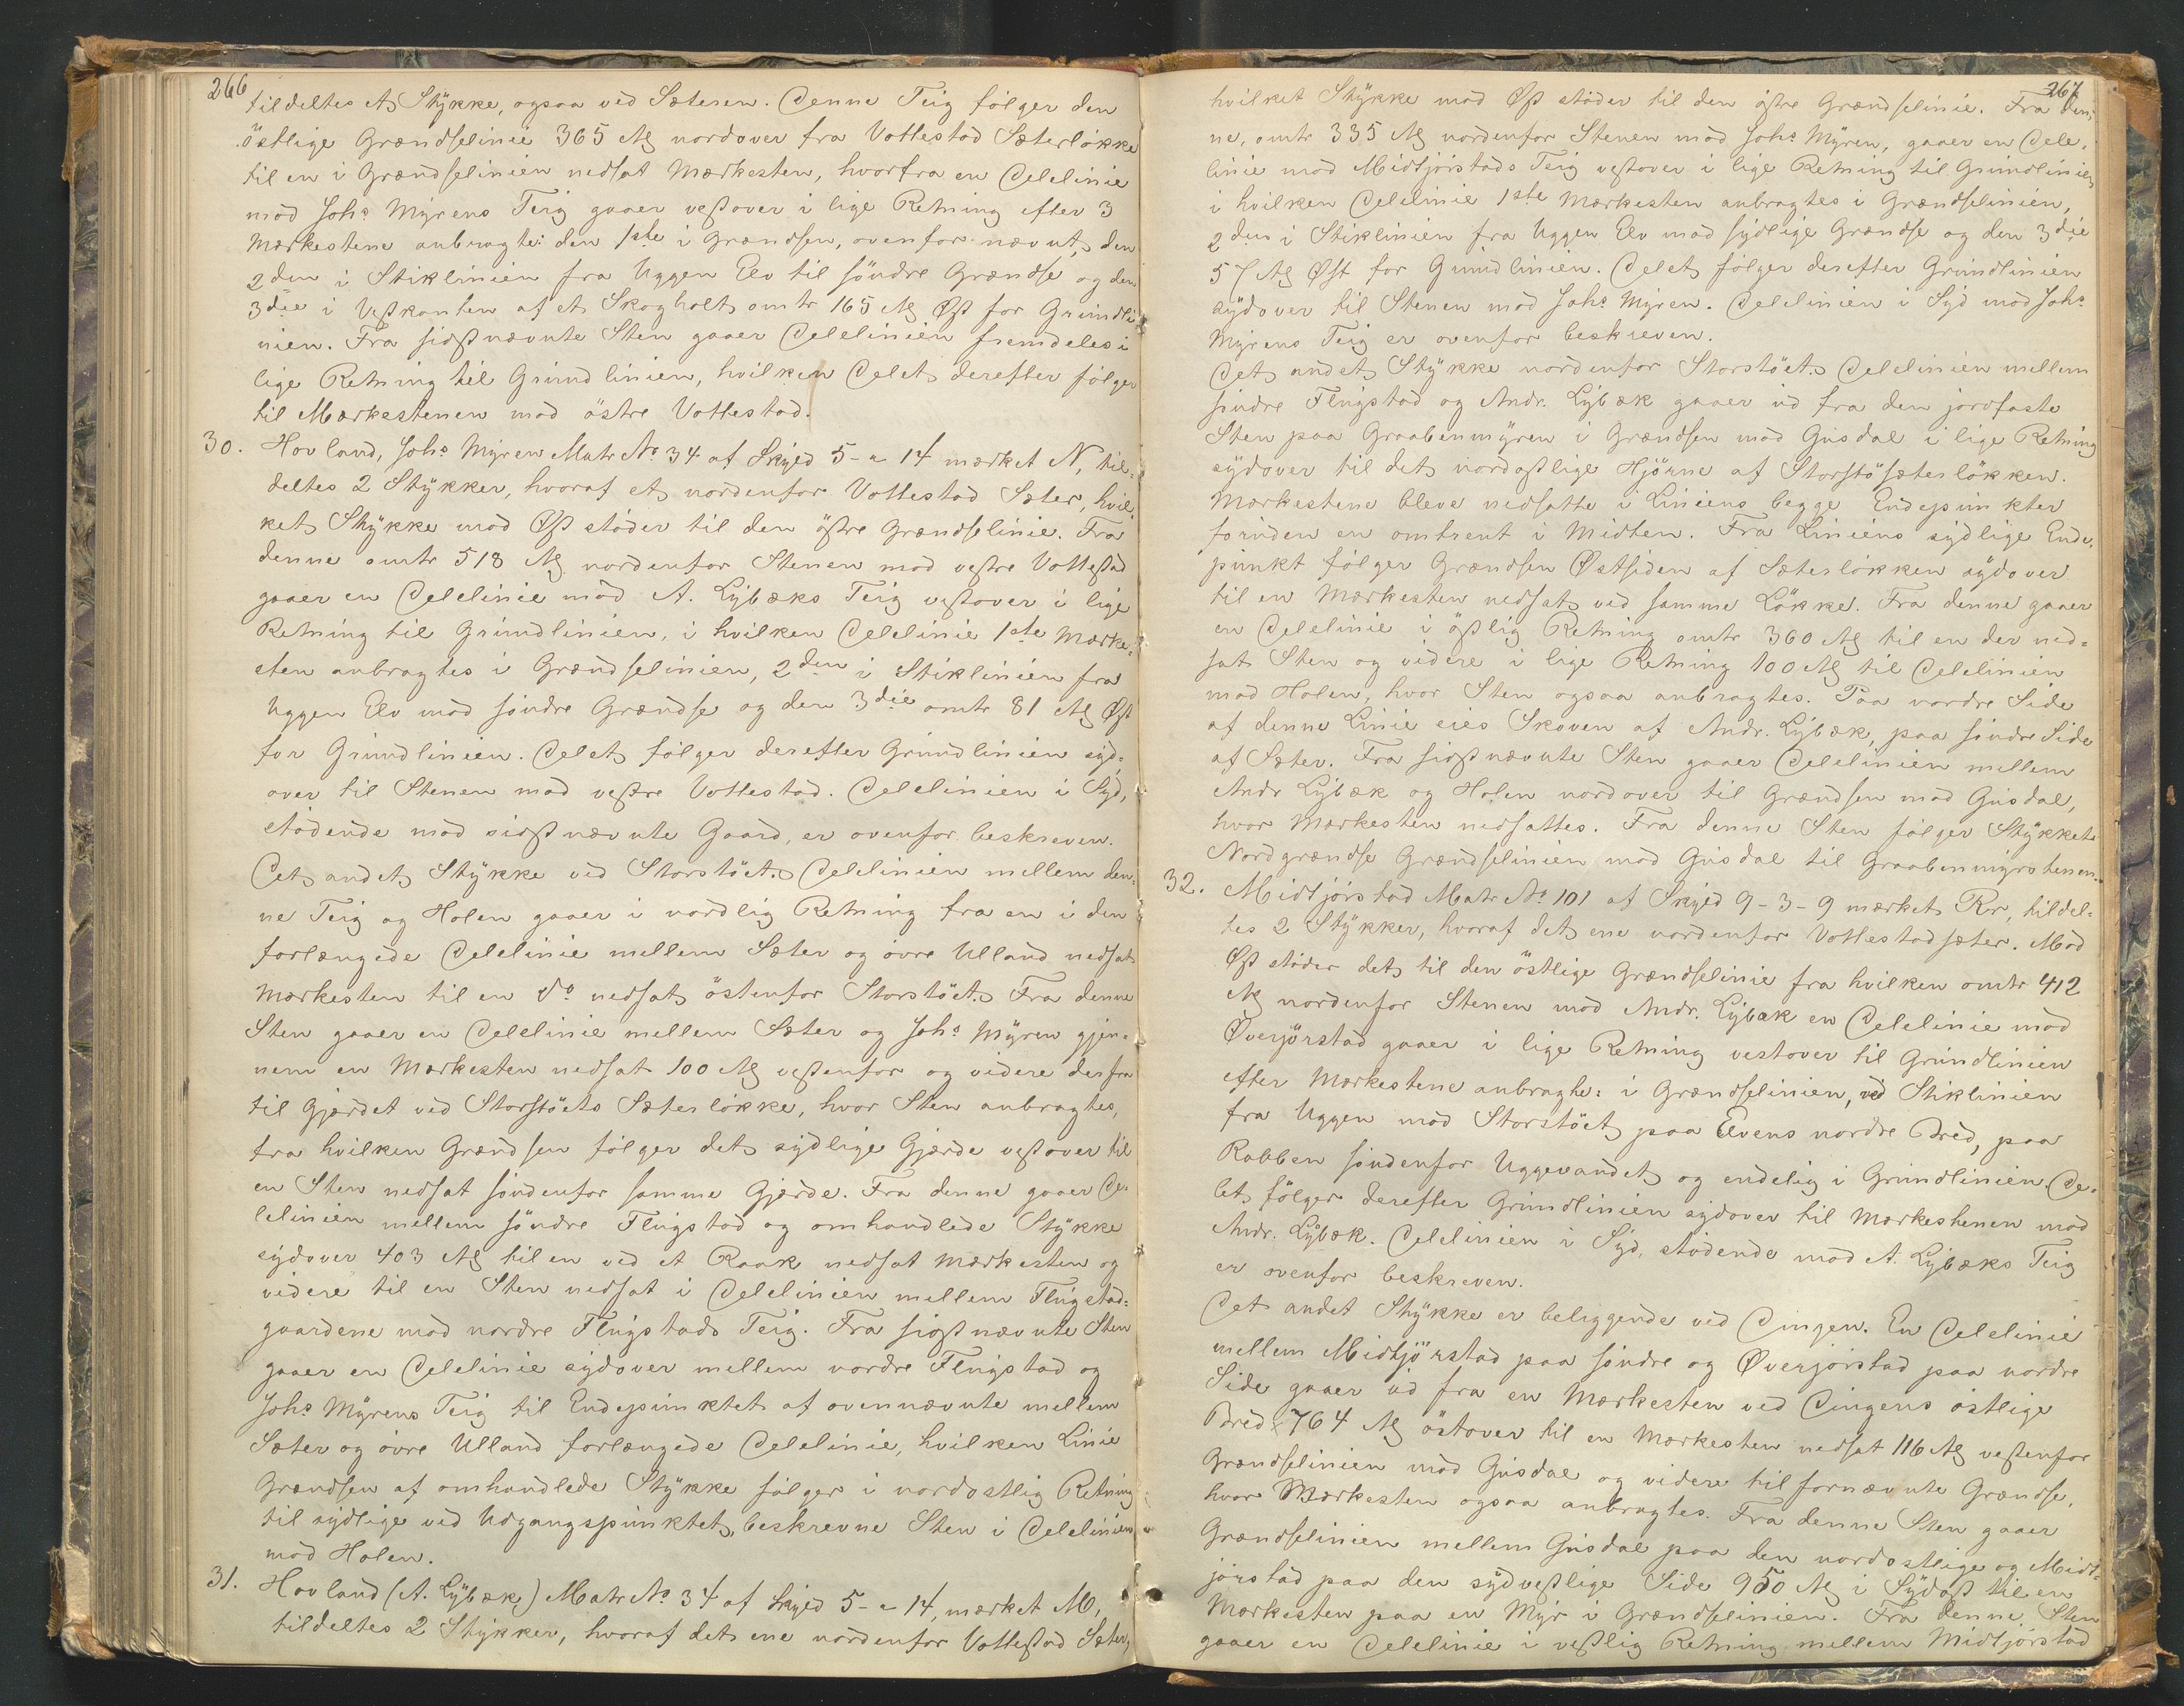 266
tildeltes et Stykke, ogsaa ved Sæteren. Denne Teig følger den
østlige Grændselinie 365 Al nordover fra Vottestad Sæterløkke
til en i Grændselinien nedsat Mærkesten, hvorfra en Delelinie
mod Johs Myrens Teig gaaer vestover i lige Retning efter 3
Mærkestene anbragte: den 1ste i Grændsen, ovenfor nævnt, den
2den i Stiklinien fra Uggen Elv til søndre Grændse og den
3die i Vestkanten af et Skogholt omtr 165 Al Øst for Grundli
nien. Fra sidstnævnte Sten gaaer Delelinien fremdeles i
lige Retning til Grundlinien, hvilken Delet derefter følger
til Mærkestenen mod østre Vottestad.
30. Hovland, Johs Myren Matr No 34 af Skyld 5 - " 14 mærket N, til-
deltes 2 Stykker, hvoraf et nordenfor Vottestad Sæter, hvil-
ket Stykke mod Øst støder til den østre Grændselinie. Fra
denne omtr 518 Al nordenfor Stenen mod vestre Vottestad
gaaer en Delelinie mod A. Lybæks Teig vestover i lige
Retning til Grundlinien, i hvilken Delelinie 1ste Mærke-
sten anbragtes i Grændselinien, 2den i Stiklinien fra
Uggen Elv mod søndre Grændse og den 3die omtr 81 Al Øst
for Grundlinien. Delet følger derefter Grundlinien syd-
over til Stenen mod vestre Vottestad. Delelinien i Syd,
stødende mod sidstnævnte Gaard, er ovenfor beskreven.
Det andet Stykke ved Storstøet. Delelinien mellem den-
ne Teig og Holen gaaer i nordlig Retning fra en i den
forlængede Delelinie mellem Sæter og øvre Ulland nedsat
Mærkesten til en do nedsat østenfor Storstøet. Fra denne
Sten gaaer en Delelinie mellem Sæter og Johs Myren gjen-
nem en Mærkesten nedsat 100 Al vestenfor og videre derfra
til Gjærdet ved Storstøets Sæterløkke, hvor Sten anbragtes,
fra hvilken Grændsen følger det sydlige Gjærde vestover til
en Sten nedsat søndenfor samme Gjærde. Fra denne gaaer De-
lelinien mellem søndre Flugstad og omhandlede Stykke
sydover 403 Al til en ved et Raak nedsat Mærkesten og
videre til en Sten nedsat i Delelinien mellem Flugstad-
gaardene mod nordre Flugstads Teig. Fra sidstnævnte Sten
gaaer en Delelinie sydover mellem nordre Flugstad og
Johs Myrens Teig til Endepunktet af ovennævnte mellem
Sæter og øvre Ulland forlængede Delelinie, hvilken Linie
Grændsen af omhandlede Stykke følger i nordostlig Retning
til sydlige ved Udgangspunktet, beskrevne Sten i Delelinien
mod Holen.
31. Hovland (A. Lybæk,) Matr No 34 af Skyld 5 - " 14, mærket M,
tildeltes 2 Stykker, hvoraf det ene nordenfor Vottestad Sæter,
267
hvilket Stykke mod Øst støder til den østre Grændselinie. Fra den-
ne, omtr 335 Al nordenfor Stenen mod Johs Myren, gaaer en Dele-
linie mod Midtjørstads Teig vestover i lige Retning til Grundlinien,
i hvilken Delelinie 1ste Mærkesten anbragtes i Grændselinien,
2den i Stiklinien fra Uggen Elv mod sydlige Grændse og den 3die
57 Al Øst for Grundlinien. Delet følger derefter Grundlinien
sydover til Stenen mod Johs Myren. Delelinien i Syd mod Johs
Myrens Teig er ovenfor beskreven.
Det andet Stykke nordenfor Storstøet. Delelinien mellem
søndre Flugstad og Andr. Lybæk gaaer ud fra den jordfaste
Sten paa Graabenmyren i Grændsen mod Gusdal i lige Retning
sydover til det nordostlige Hjørne af Storstøsæterløkken.
Mærkestene bleve nedsatte i Liniens begge Endepunkter
foruden en omtrent i Midten. Fra Liniens sydlige Ende-
punkt følger Grændsen Østsiden af Sæterløkken sydover
til en Mærkesten nedsat ved samme Løkke. Fra denne gaaer
en Delelinie i østlig Retning omtr 360 Al til en der ned-
sat Sten og videre i lige Retning 100 Al til Delelinien
mod Holen, hvor Sten ogsaa anbragtes. Paa nordre Side
af denne Linie eies Skoven af Andr. Lybæk, paa søndre Side
af Sæter. Fra sidstnævnte Sten gaaer Delelinien mellem
Andr Lybæk og Holen nordover til Grændsen mod Gusdal,
hvor Mærkesten nedsattes. Fra denne Sten følger Stykkets
Nordgrændse Grændselinien mod Gusdal til Graabenmyrstenen.
32. Midtjørstad Matr No 101 af Skyld 9 - 3 - 9 mærket Rr, tildel-
tes 2 Stykker, hvoraf det ene nordenfor Vottestadsæter. Mod
Øst støder det til den østlige Grændselinie fra hvilken omtr 412
Al nordenfor Stenen mod Andr. Lybæk en Delelinie mod
Øverjørstad gaaer i lige Retning vestover til Grundlinien
efter Mærkestene anbragte: i Grændselinien, ved Stiklinien
fra Uggen mod Storstøet paa Elvens nordre Bred, paa
Rabben søndenfor Uggevandet og endelig i Grundlinien. De-
let følger derefter Grundlinien sydover til Mærkestenen mod
Andr. Lybæk. Delelinien i Syd, stødende mod A. Lybæks Teig
er ovenfor beskreven.
Det andet Stykke er beliggende ved Dingen. En Delelinie
mellem Midtjørstad paa søndre og Øverjørstad paa nordre
Side gaaer ud fra en Mærkesten ved Dingens østlige
Bred 764 Al østover til en Mærkesten nedsat 116 Al vestenfor
Grændselinien mod Gusdal og videre til fornævnte Grændse,
hvor Mærkesten ogsaa anbragtes. Fra denne Sten gaaer
Grændselinien mellem Gusdal paa den nordostlige og Midt-
jørstad paa den sydvestlige Side 950 Al i Sydost til en
Mærkesten paa en Myr i Grændselinien. Fra denne Sten
gaaer en Delelinie i vestlig Retning mellem Midtjørstad